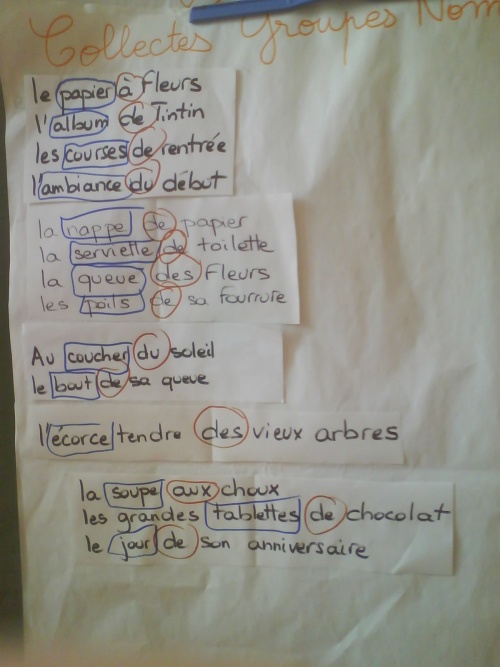 Collectes Groupes Nom
le papier à fleurs
l'album de Tintin
les courses de rentrée
l'ambiance du début
la nappe de papier
la serviette de toilette
la queue des fleurs
les poils de sa fourrure
Au coucher du soleil
le bout de sa queue
l'écorce tendre des vieux arbres
la soupe aux choux
les grandes tablettes de chocolat
le jour de son anniversaire